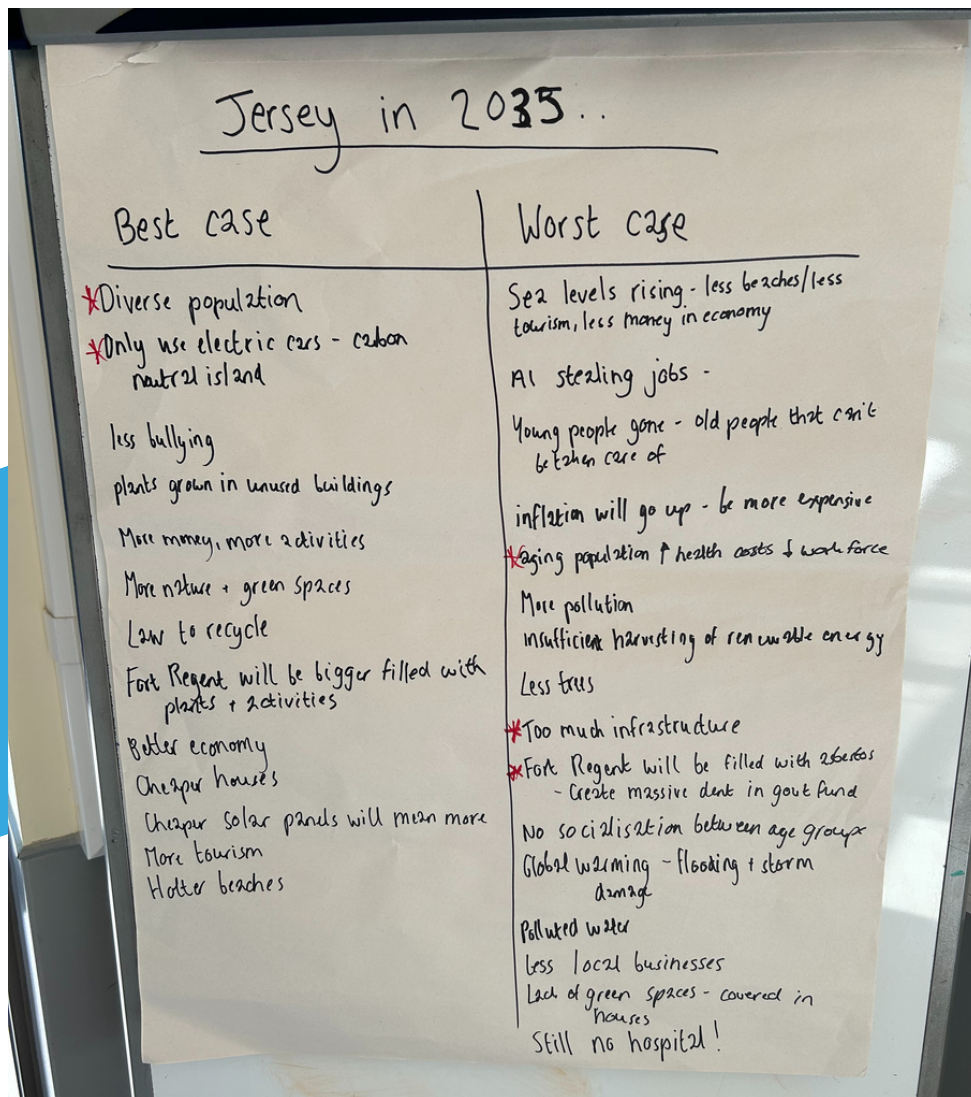 Jersey in 2035..
Best case
*Diverse population
*Only use electric cars - carbon
neutral island
less bullying
plants grown in unused buildings
More money, more activities
More nature + green spaces
Law to recycle
Fort Regent will be bigger filled with
plants + activities
Better economy
Cheaper houses
Cheaper solar panels will mean more
More tourism
Hotter beaches
Worst case
Sea levels rising - less beaches/less
tourism, less money in economy
AI stealing jobs -
Young people gone - old people that can't
be taken care of
inflation will go up - be more expensive
*aging population ↑ health costs ↓ workforce
More pollution
insufficient harvesting of renewable energy
Less trees
*Too much infrastructure
*Fort Regent will be filled with asbestos
- Create massive dent in govt fund
No socialisation between age groups
Global warming - flooding + storm
damage
Polluted water
Less local businesses
Lack of green spaces - covered in
houses
Still no hospital!